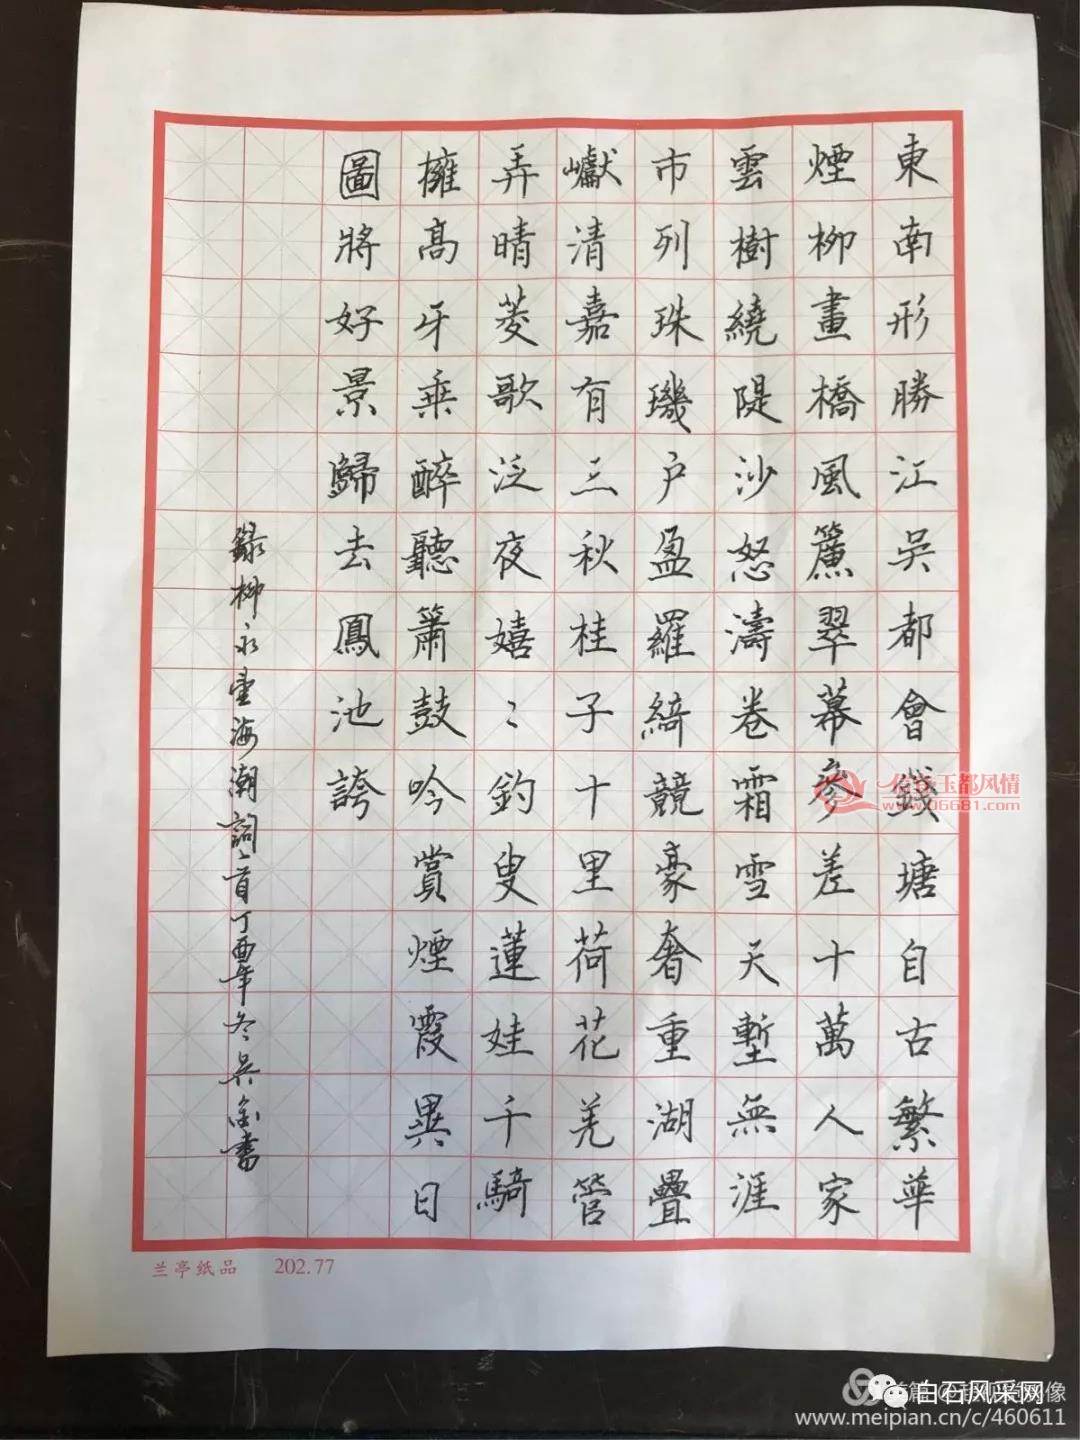 東南形勝江吳都會錢塘自古繁華
煙柳畫橋風簾翠幕參差十萬人家
雲樹繞隄沙怒濤卷霜雪天塹無涯
市列珠璣户盈羅綺競豪奢重湖疊
巘清嘉有三秋桂子十里荷花羌管
弄晴菱歌泛夜嬉〻釣叟蓮娃千騎
擁高牙乘醉聽簫鼓吟賞煙霞異日
圖將好景歸去鳳池誇
錄柳永望海潮詞一首丁酉年冬吳書
兰亭纸品 202.77
信宜玉都风情
www.06681.com
白石风采网
www.meipian.cn/c/460611